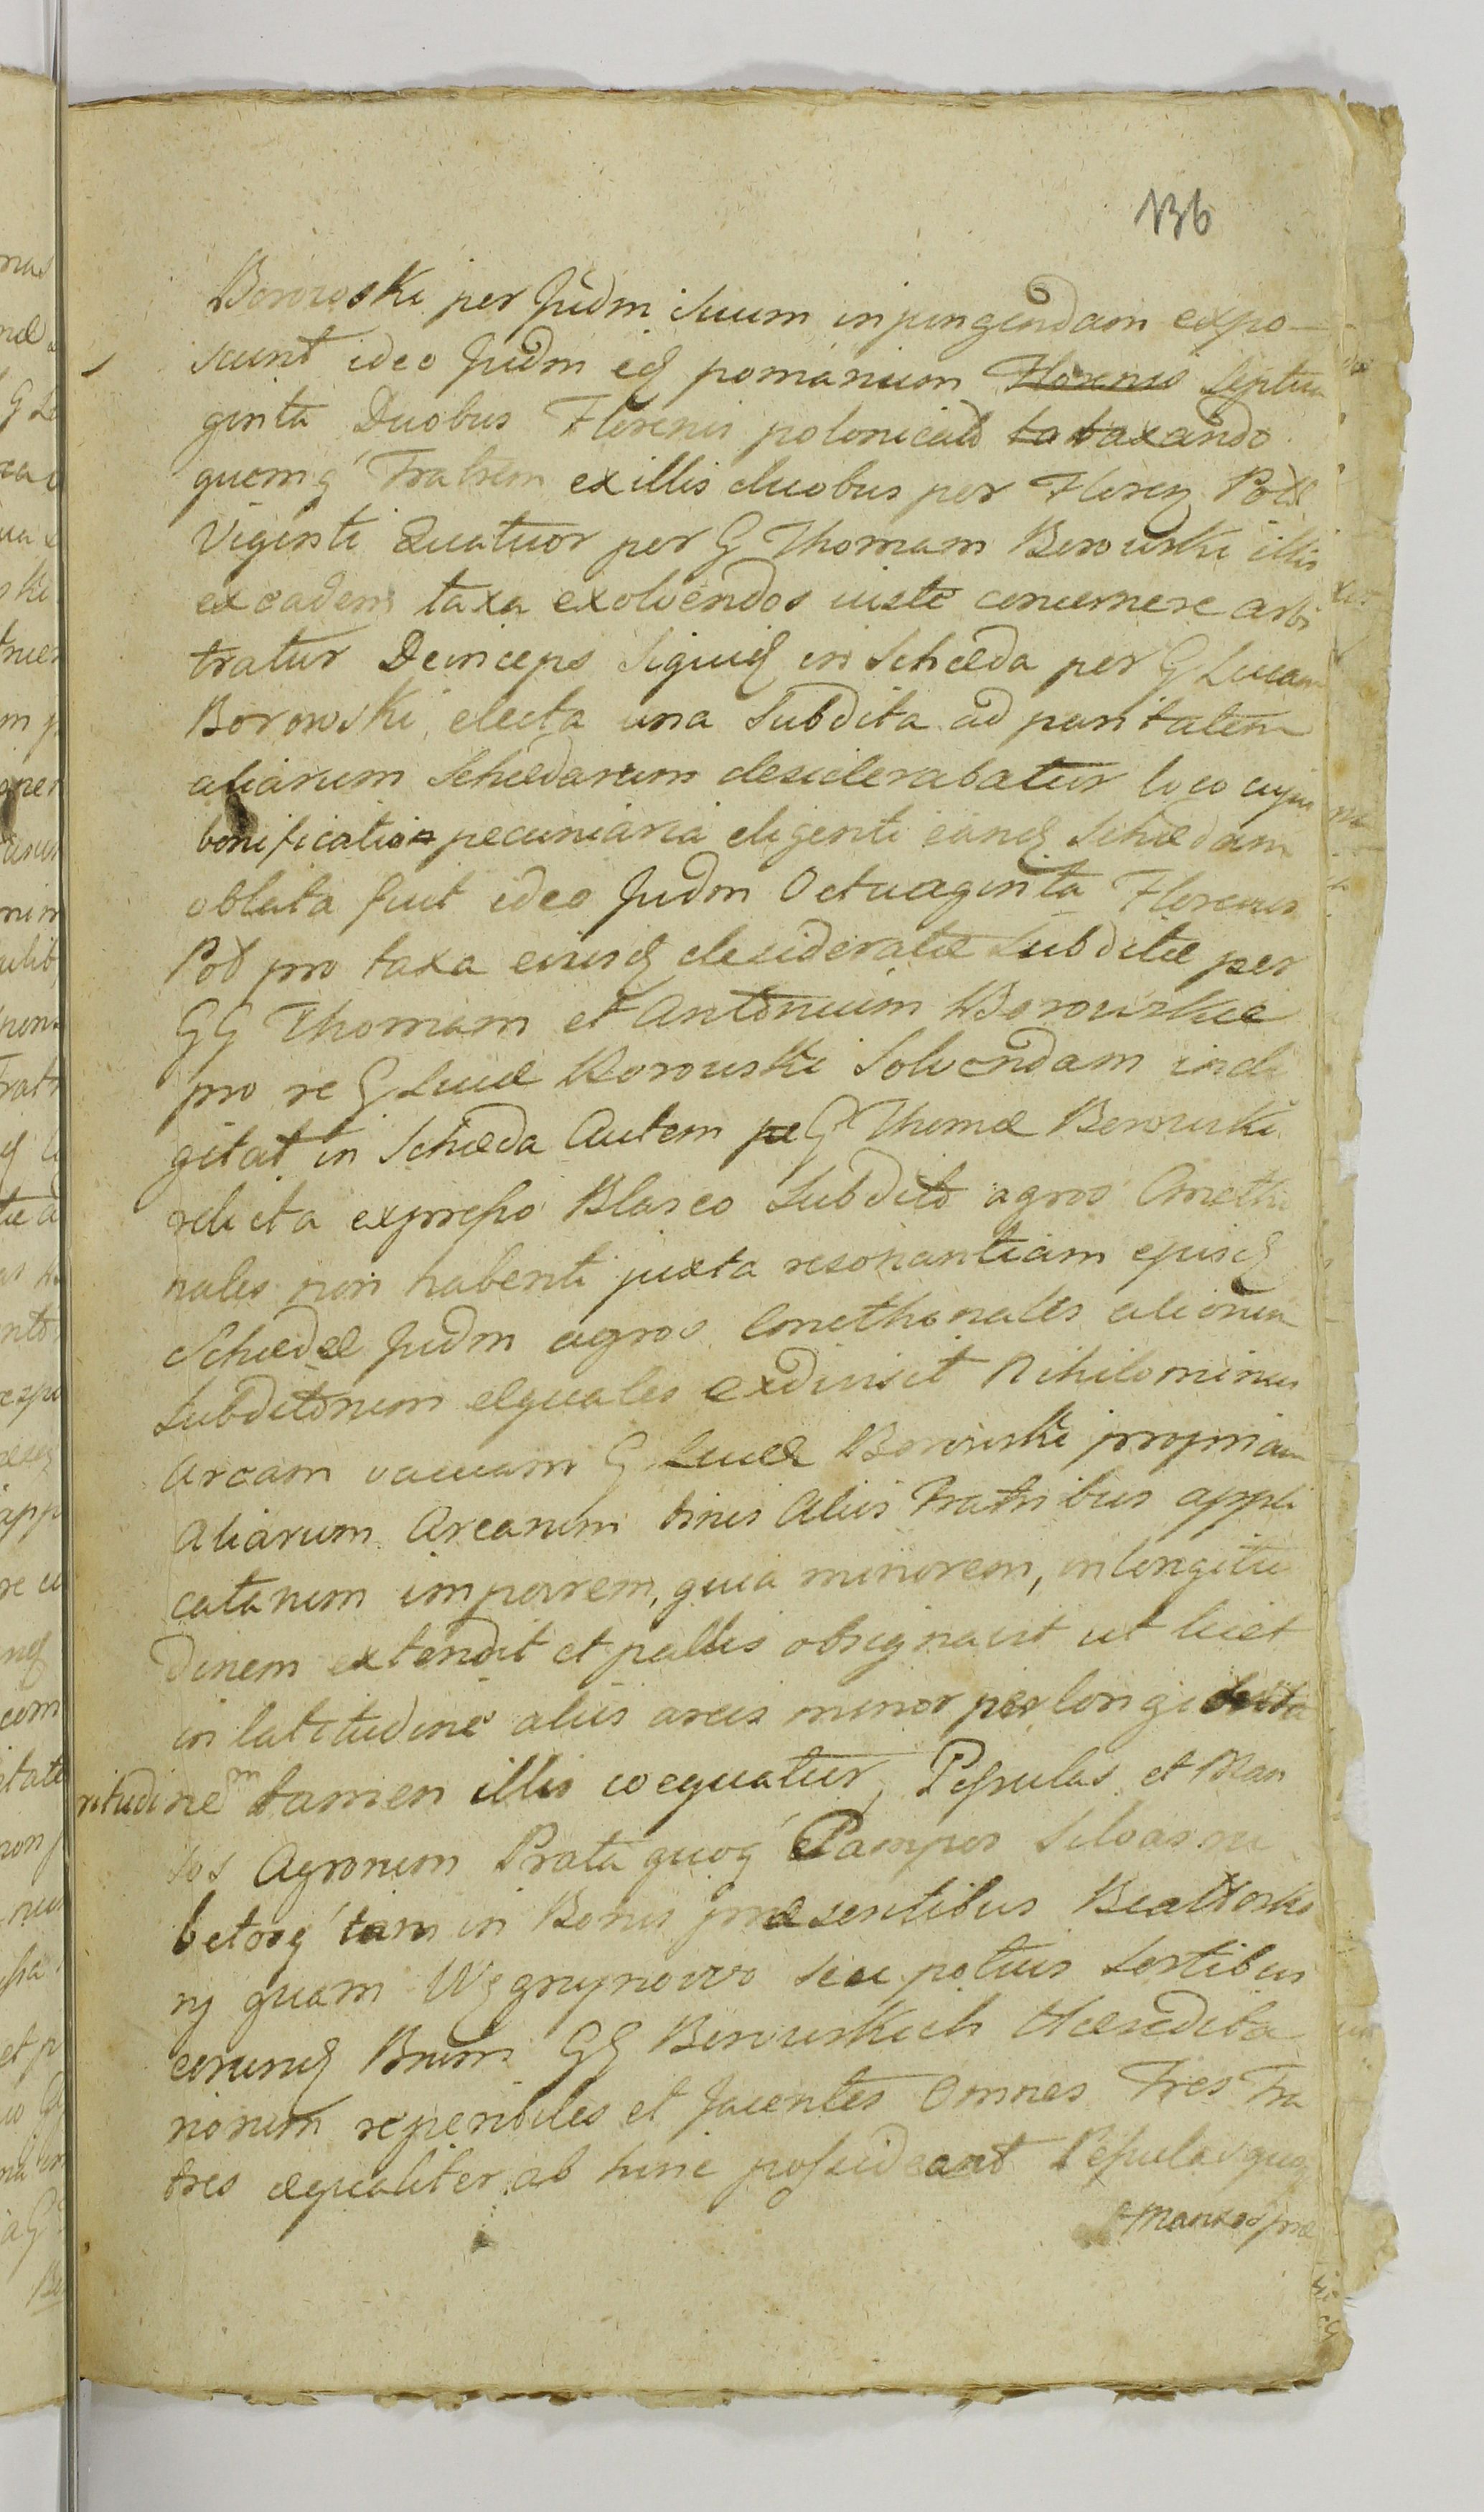 136
Borowski per Judm suum injungendam expo-
scunt ideo Judm eq pomarium Florenis Septua
ginta Duobus Florenis polonicalb ta taxando
quemq Fratrem ex illis duobus per Floren Pol
Viginti Quatuor per G Thomam Borowski illis
ex eadem taxa exolvendos iuste concernere arbi
tratur Deinceps Siquid in Schæda per G Lucam
Borowski electa una Subdita ad paritatem
aliarum Schedarum desiderabatur loco cujus
bonificatio pecuniaria eligenti eandq Schædam
oblata fuit ideo Judm Octuaginta Florenus
Pol pro taxa eiusdq desideratæ Subditæ per
GG Thomam et Antonium Borowskie
pro re G Lucæ Borowski Solvendam indi
gitat in Schæda Autem G Thomæ Borowski
relicta expresso Blasco Subdito agros Cmetho
nales non habenti juxta resonantiam ejusdq
Schedæ Judm agros Cmethonales aliorum
Subditorum elquales exdivisit Nihilominus
Aream vacuam G Lucæ Borowski propriam
Aliarum Arearum binis Aliis Fratribus appli
catarum imparem, quia minorem, in longitu
dinem extendit et pallis obsignavit ut licet
in latitudine aliis areis minor per longi
ritudinem tamen illis coequatur, Pessulas et Man
sos Agrorum Prata quoq Campos Silvas ru
betaq tam in Bonis præsentibus
ry quam Węgrzynowo seu potius Sortibus
eorundq Bnrum GG Borowskich Hæredita
riorum reperibiles et Jacentes Omnes Tres Fra
tres æqualiter ab hinc possideant Pessulas quoq
Mansos præ